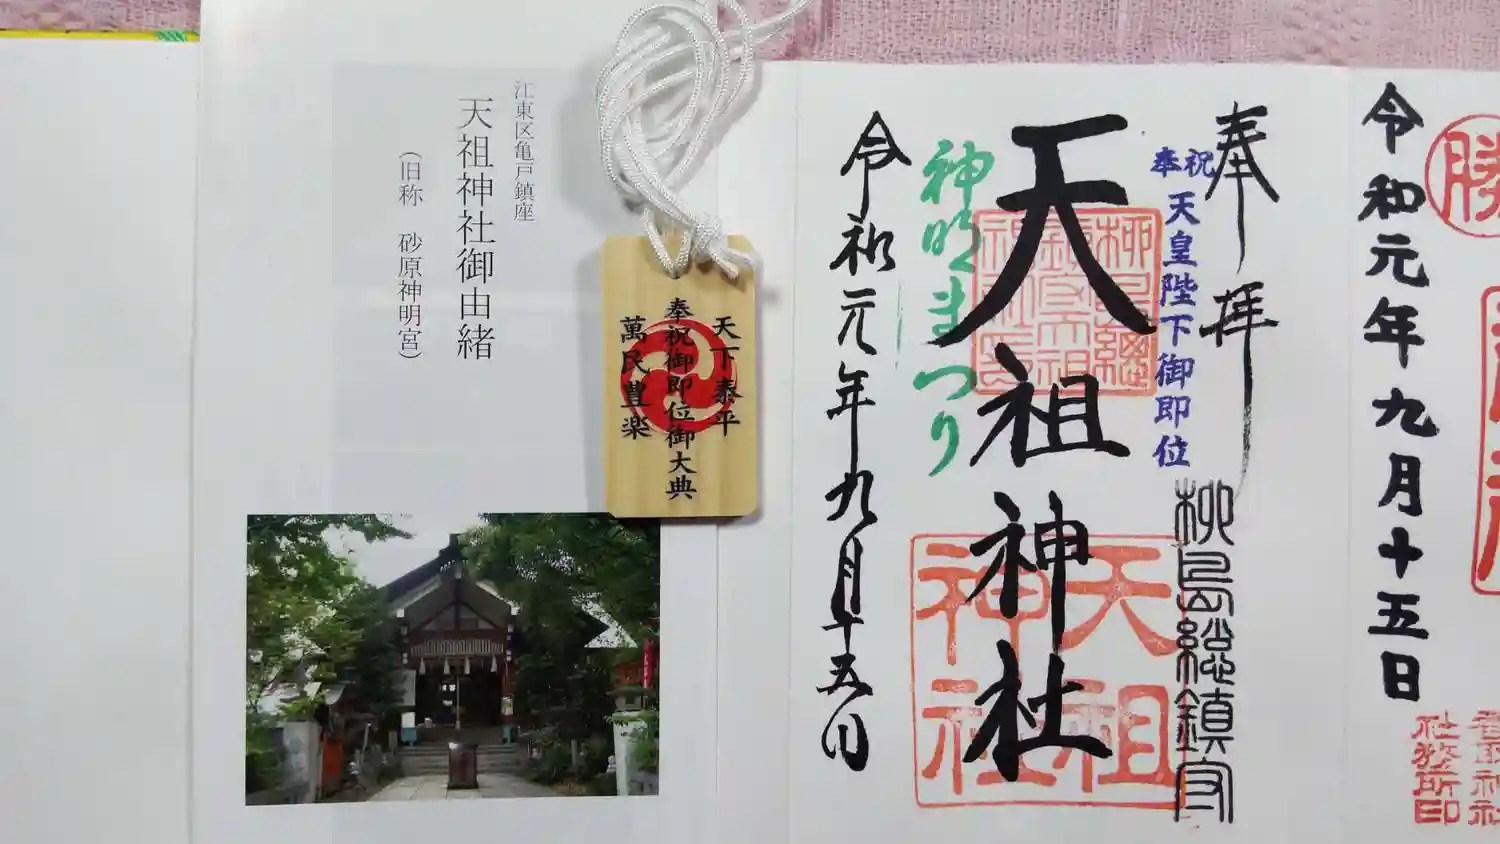 江東区亀戸鎮座
天祖神社御由緒
(旧称 砂原神明宮)
天下泰平
奉祝御即位御大典
萬民豊楽
奉拝
柳島総鎮守
奉祝
天皇陛下御即位
天祖神社
天祖
神社
神明まつり
令和元年九月十五日
令和元年九月十五日
勝
香取神社
社務所印